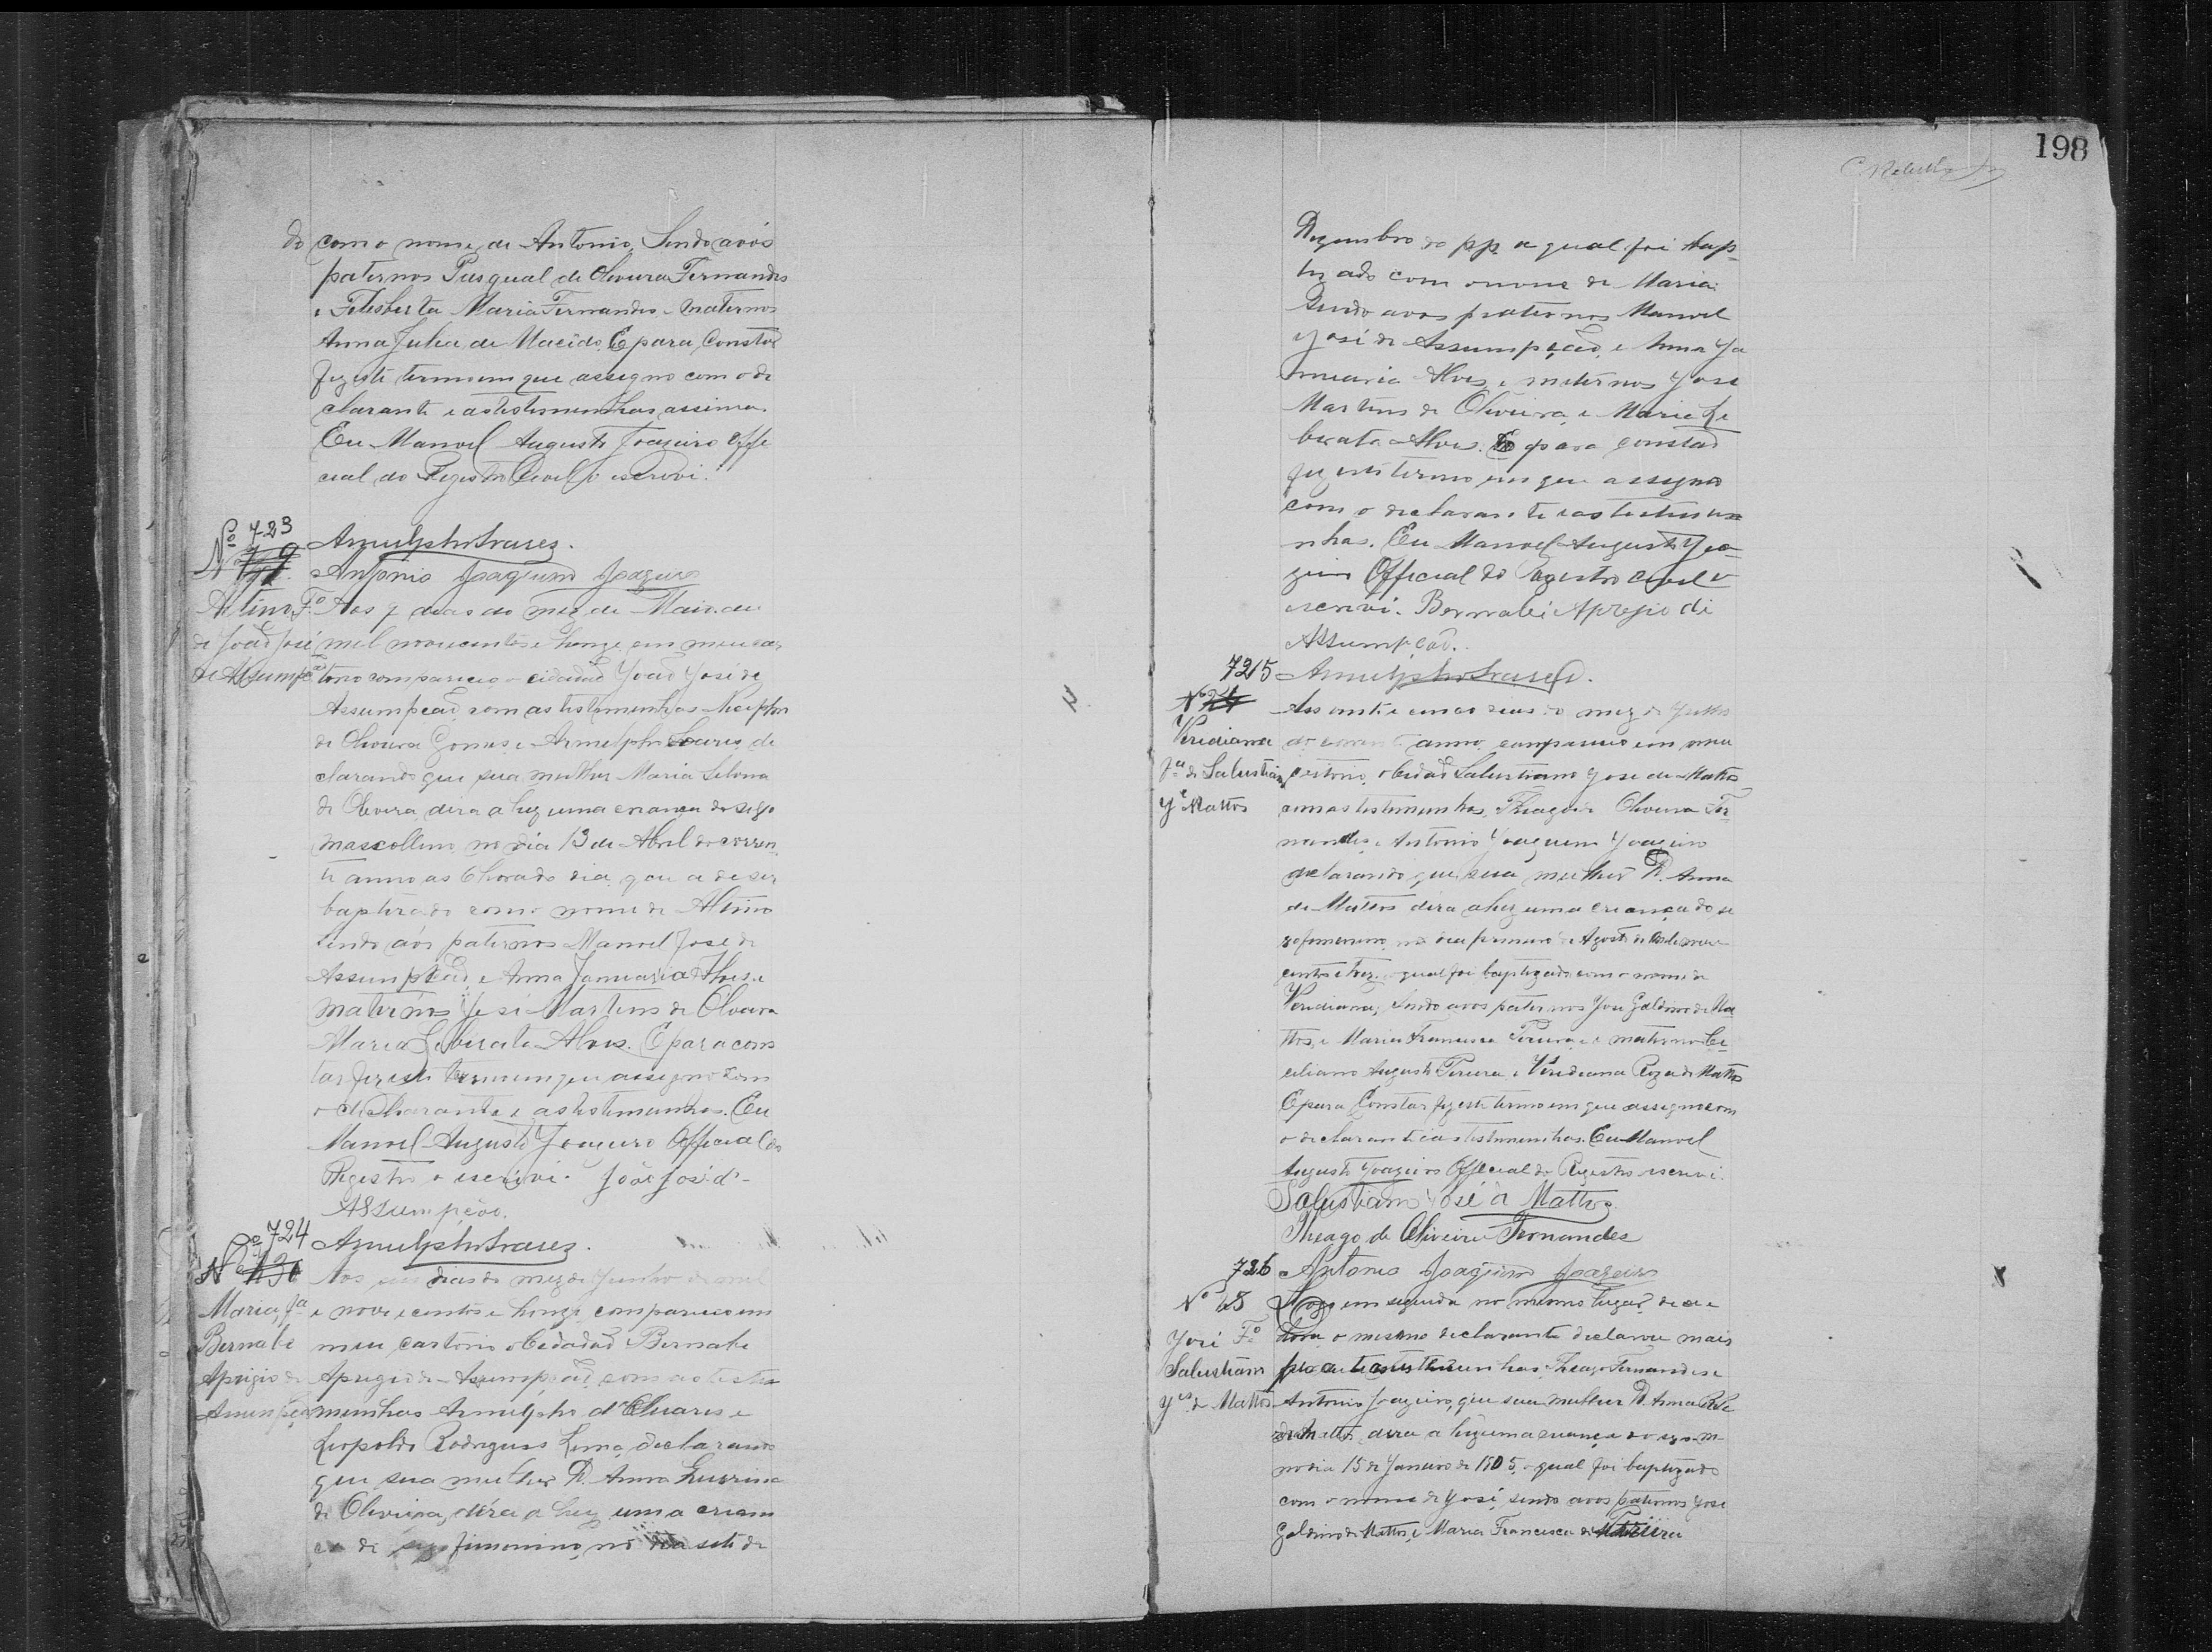 198
do com o nome de Antonio, Sendo avós
paternos Pasqual de Oliveira Fernandes
e Felisberta Maria Fernandes e maternos
Anna Julia de Macêdo. E para Constar
fiz este termo em que assigno com o de
clarante e as testemunhas assima.
Eu Manoel Augusto Joazeiro Offi
cial do Registro Civil o escrevi.
Nº 723
Arnulpho Soares.
Antonio Joaquim Joazeiro
Altino, Fº
de João José
de Assumpção
Aos 7 dias do mez de Maio de
mil novecentos e honze em meu car
torio compareceo o cidadão João José de
Assumpção com as testemunhas
de Oliveira Gomes e Arnulpho Soares, de
clarando que sua mulher Maria
de Oliveira dera a luz uma criança do sexo
mascolino no dia 13 de Abril do corren
te anno as 6 hora do dia, que a de ser
baptizado com o nome de Altino
sendo avós paternos Manoel José de
Assumpção e Anna Januaria Alves e
maternos José Martins de Oliveira
Maria Liberata Alves. E para cons
tar fiz este termo em que assigno com
o declarante e as testemunhas. Eu
Manoel Augusto Joazeiro Official do
Registro o escrevi. João José d'
Assumpção.
Nº 724
Arnulpho Soares.
Maria, fª
Bernabe
Aprigio de
Assumpção
Aos seis dias do mez de Junho de mil
e nove centos e honze, compareceo em
meu cartorio o Cidadão Bernabe
Aprigio de Assumpção com as teste
munhas Arnulpho d' Soares e
Leopoldo Rodrigues Lima, declarando
que sua mulher D. Anna
de Oliveira, déra a luz uma crian
ça do sexo fimonino, no dia sete de
Dezembro do pp. a qual foi bap
tizado com o nome de Maria
Sendo avos paternos Manoel
José de Assumpção, e Anna Ja
nuaria Alves, e maternos José
Martins de Oliveira, e Maria Li
berata Alves. E para constar
fiz este termo em que assigno
com o declarante e as testemu
nhas. Eu Manoel Augusto Joa
zeiro Official do Registro Civil o
escrevi. Bernabé Aprigio di
Assumpção.
725 Arnulpho Soares.
Nº 24
Veridiana
fª de Salustiano
Jé Mattos
Aos vinte e cinco dias do mez de Julho
do corrente anno, compareceo em meu
cartorio, o Cidadão Salustiano José de Mattos
com as testemunhas, Thiago de Oliveira Fer
nandes, e Antonio Joaquim Joazeiro
declarando que sua mulher D. Anna
de Mattos dera a luz uma criança do se
xo femenino, no dia primeiro de Agosto de mil nove
centos e tres, o qual foi baptizado com o nome de
Veridiana, sendo avos paternos José Galdino de Ma
ttos, e Maria Francisca Pereira, e maternos
Augusto Pereira, e Veridiana Roza de Mattos
E para Constar fiz este termo em que assigno com
o declarante e as testemunhas. Eu Manoel
Augusto Joazeiro Official do Registro escrevi.
Salustiano José d Mattos
Thiago de Oliveira Fernandes
726 Antonio Joaquim Joazeiro
Nº 25
José Fº
Salustiano
Jé de Mattos
Logo em seguida no mesmo lugar, dia e
hora o mesmo declarante declarou mais
perante as testemunhas: Thiago Fernandes e
Antonio Joazeiro, que sua mulher D. Anna
de Mattos, dera a luz uma criança do sexo m
no dia 15 de Janeiro de 1905, o qual foi baptizado
com o nome de José, sendo avos paternos José
Galdino de Mattos, e Maria Francisca de Pereira